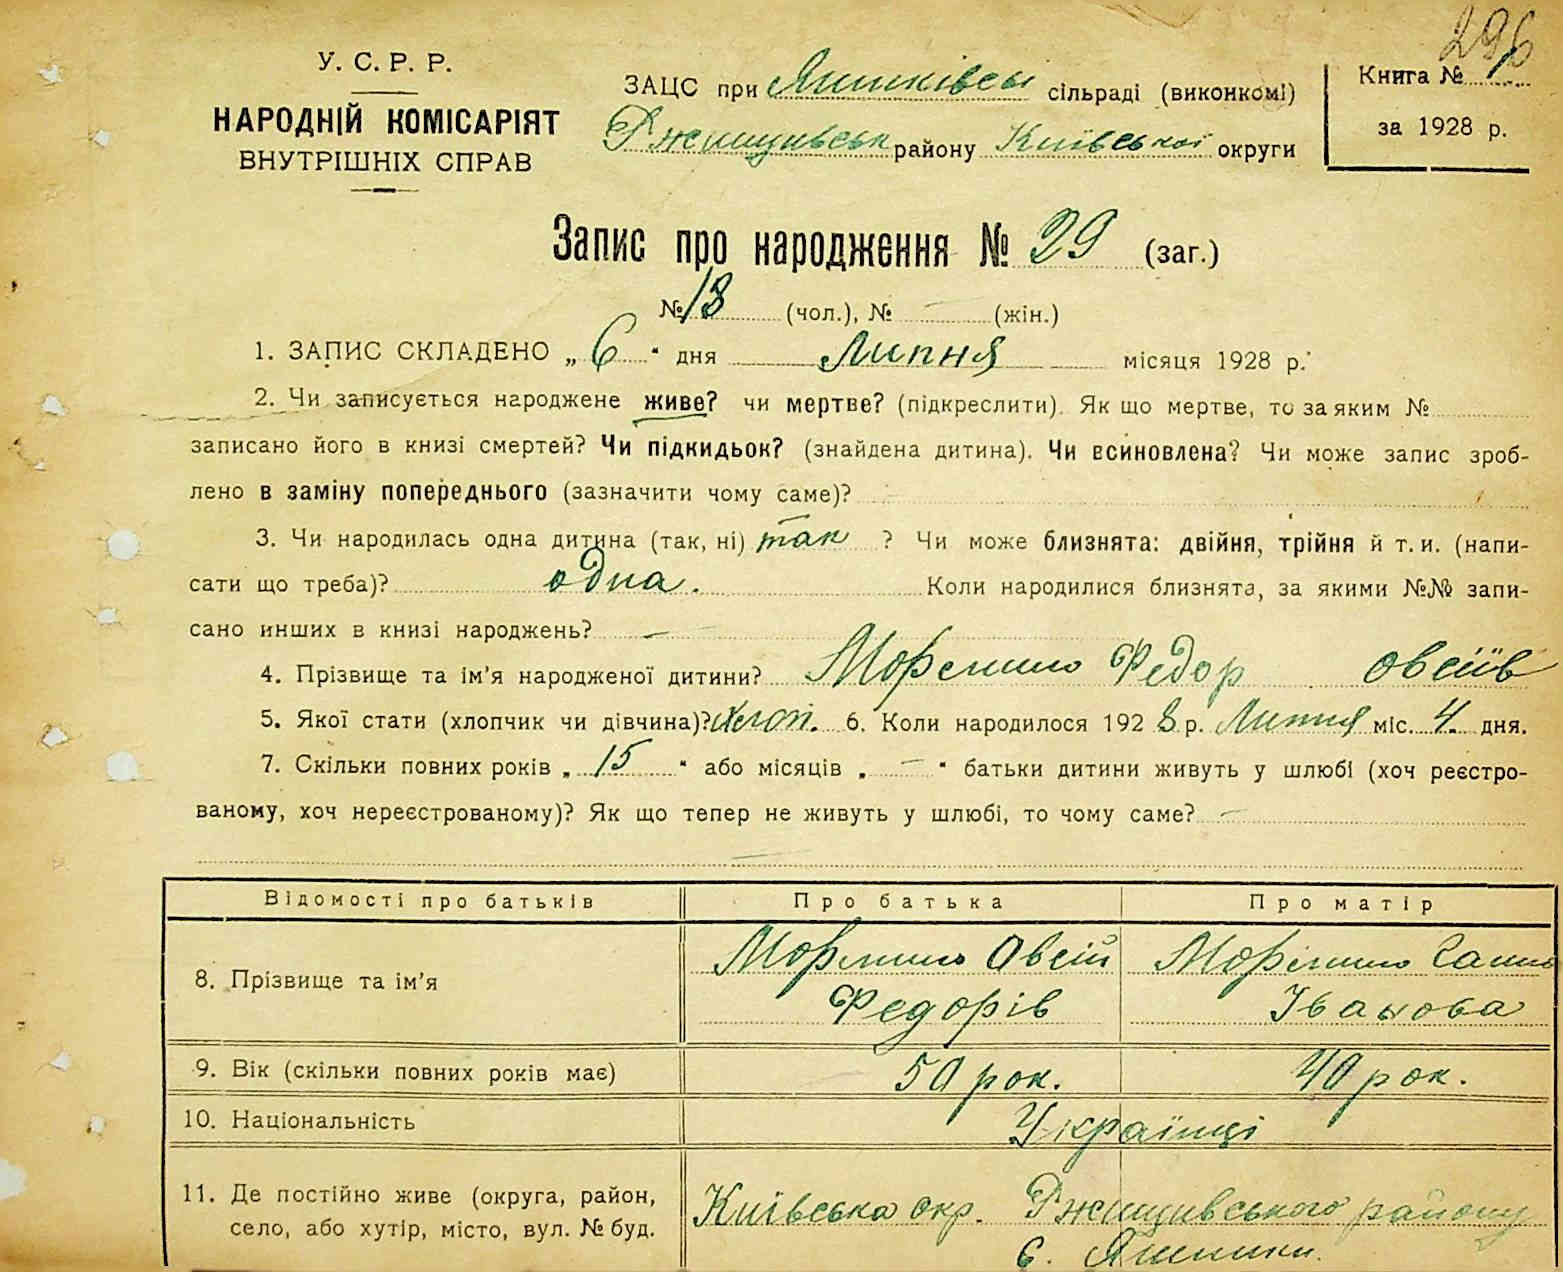 296
У. С. Р. Р.
НАРОДНІЙ КОМІСАРІЯТ
ВНУТРІШНІХ СПРАВ
ЗАЦС при Яшниківські сільраді (виконкомі)
Ржищивськ району Київської округи
Книга № 1
за 1928 р.
Запис про народження № 29 (заг.)
№ 18 (чол.), № — (жін.)
1. ЗАПИС СКЛАДЕНО „ 6 “ дня Липня місяця 1928 р.
2. Чи записується народжене живе? чи мертве? (підкреслити). Як що мертве, то за яким №
записано його в книзі смертей? Чи підкидьок? (знайдена дитина). Чи всиновлена? Чи може запис зроб-
лено в заміну попереднього (зазначити чому саме)?
3. Чи народилась одна дитина (так, ні) так ? Чи може близнята: двійня, трійня й т. и. (напи-
сати що треба)? одна. Коли народилися близнята, за якими №№ запи-
сано инших в книзі народжень? —
4. Прізвище та ім'я народженої дитини? Федор Овсіїв
5. Якої стати (хлопчик чи дівчина)? Хлоп. 6. Коли народилося 1928 р. Липня міс. 4. дня.
7. Скільки повних років „ 15 “ або місяців „ — “ батьки дитини живуть у шлюбі (хоч реєстро-
ваному, хоч нереєстрованому)? Як що тепер не живуть у шлюбі, то чому саме? —
—
Відомості про батьків Про батька Про матір
8. Прізвище та ім'я Овсій Ганна
Федорів Іванова
9. Вік (скільки повних років має) 50 рок. 40 рок.
10. Національність Українці
11. Де постійно живе (округа, район, Київська окр. Ржищивського району
село, або хутір, місто, вул. № буд. с.